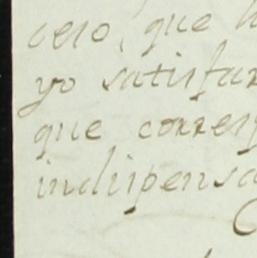 cero, que
yo satisfar
que corresp
indispensa